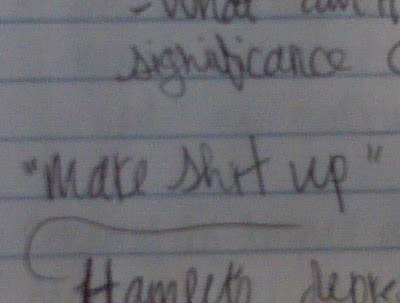 - What can
significance (
"make shit up"
Hamlet's depre